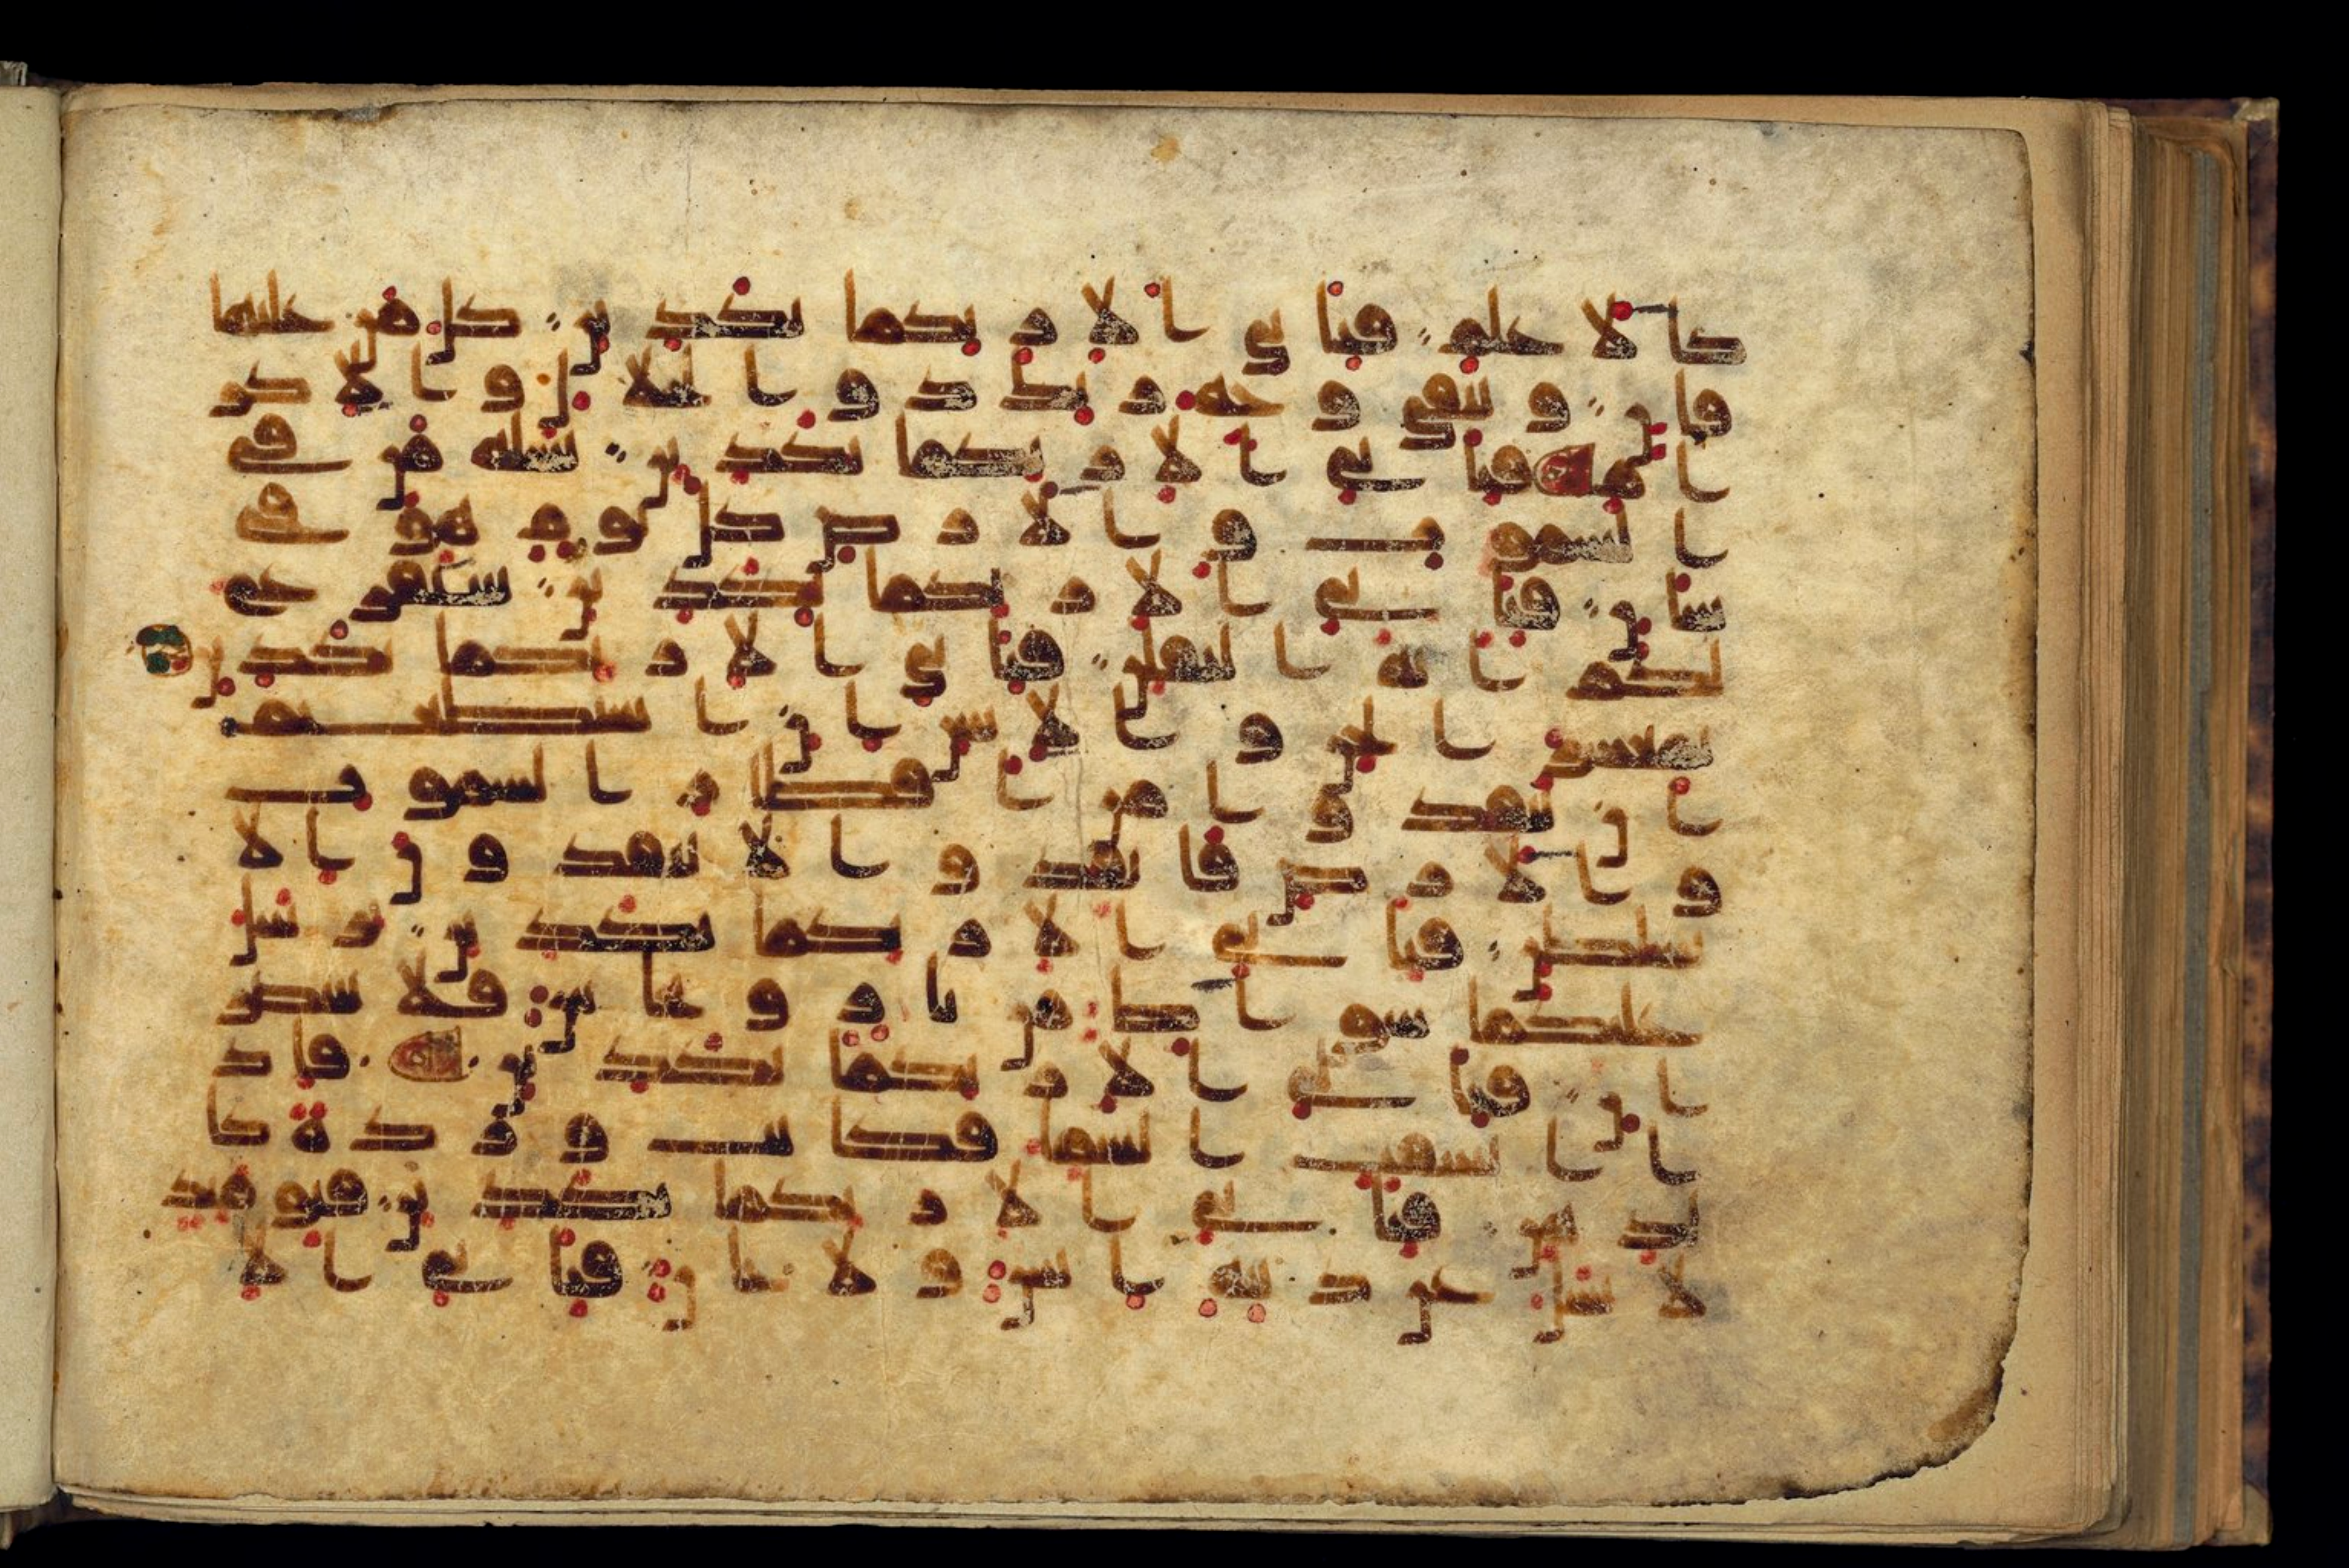 كالاعلم فباي الا ربكما تكذبن كل من عليها
فان ويبقى وجه ربك ذو الجلل والاكر
ام فباي الا ربكما تكذبن يسله من في
السموت والارض كل يوم هو في
شان فباي الا ربكما تكذبن سنفرغ
لكم ايه الثقلن فباي الا ربكما تكذبن
يمعشر الجن والانس ان استطعتم
ان تنفذوا من اقطار السموت
والارض فانفذوا لا تنفذون الا
بسلطن فباي الا ربكما تكذبن يرسل
عليكما شواظ من نار ونحاس فلا تنتصر
ان فباي الا ربكما تكذبن فاذ
ا انشقت السما فكانت وردة كا
لدهن فباي الا ربكما تكذبن فيومئذ
لا يسل عن ذنبه انس ولا جان فباي الا